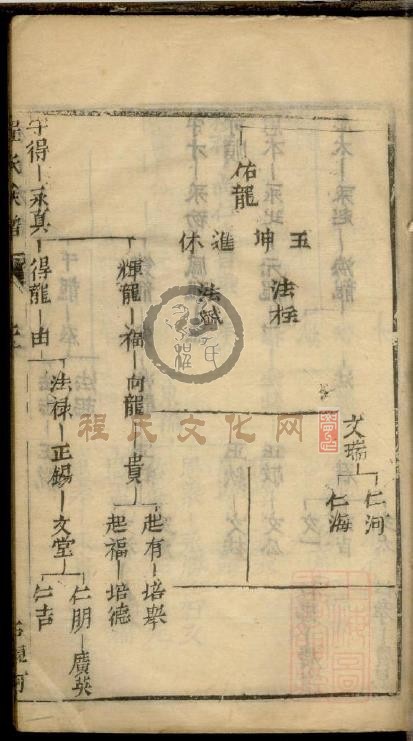 仁河
文瑞
仁海
玉 法柱
坤
佑龍
進
休
起有 培舉
輝龍 福 向龍 貴
起福 培德
仁朋 廣英
得 承真 得龍 由 法祿 正錫 文堂
仁吉
程氏族譜
程氏文化网